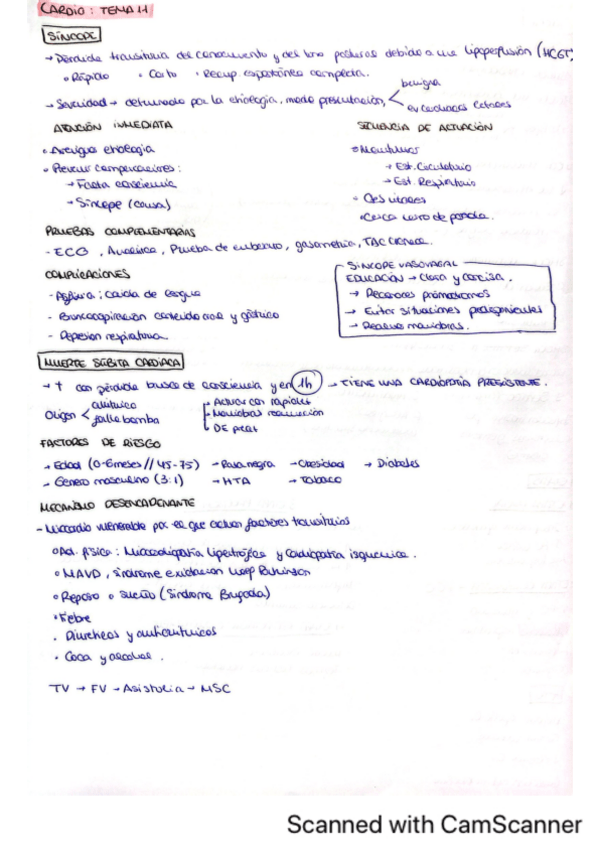 CARDIO: TEMA 11
SÍNCOPE
→ Pérdida transitoria del conocimiento y del tono postural debido a una hipoperfusión (HCGT)
• Rápido • Corto • Recup. espontánea completa.
→ Severidad → determinada por la etiología, modo presentación, benigna
ATENCIÓN INMEDIATA
• Averigua etiología
• Prevenir complicaciones:
→ Falta consciencia
→ Síncope (causa)
SECUENCIA DE ACTUACIÓN
• Monitorizar
→ Est. Circulatorio
→ Est. Respiratorio
PRUEBAS COMPLEMENTARIAS
- ECG, Analítica, Prueba de embarazo, gasometría, TAC craneal.
COMPLICACIONES
- Asfixia: caída de lengua
- Broncoaspiración contenido oral y gástrico
- Depresión respiratoria
SÍNCOPE VASOVAGAL
EDUCACIÓN → Clara y concisa.
→ Reconocer pródromos
→ Evitar situaciones
→ Realizar maniobras.
MUERTE SÚBITA CARDÍACA
→ † con pérdida brusca de consciencia y en 1h → TIENE UNA CARDIOPATÍA PREEXISTENTE.
Origen < arrítmico
fallo bomba
→ Actuar con rapidez
→ Maniobras reanimación
FACTORES DE RIESGO
→ Edad (0-6 meses // 45-75) → Raza negra → Obesidad → Diabetes
→ Género masculino (3:1) → HTA → Tabaco
MECANISMO DESENCADENANTE
- Miocardio vulnerable por el que actúan factores transitorios
• Act. física: Miocardiopatía hipertrófica y Cardiopatía isquémica.
• MAVD, síndrome Wolf Parkinson
• Reposo o sueño (Síndrome Brugada)
• Fiebre
• Diuréticos y antiarrítmicos
• Coca y alcohol.
TV → FV → Asistolia → MSC
Scanned with CamScanner